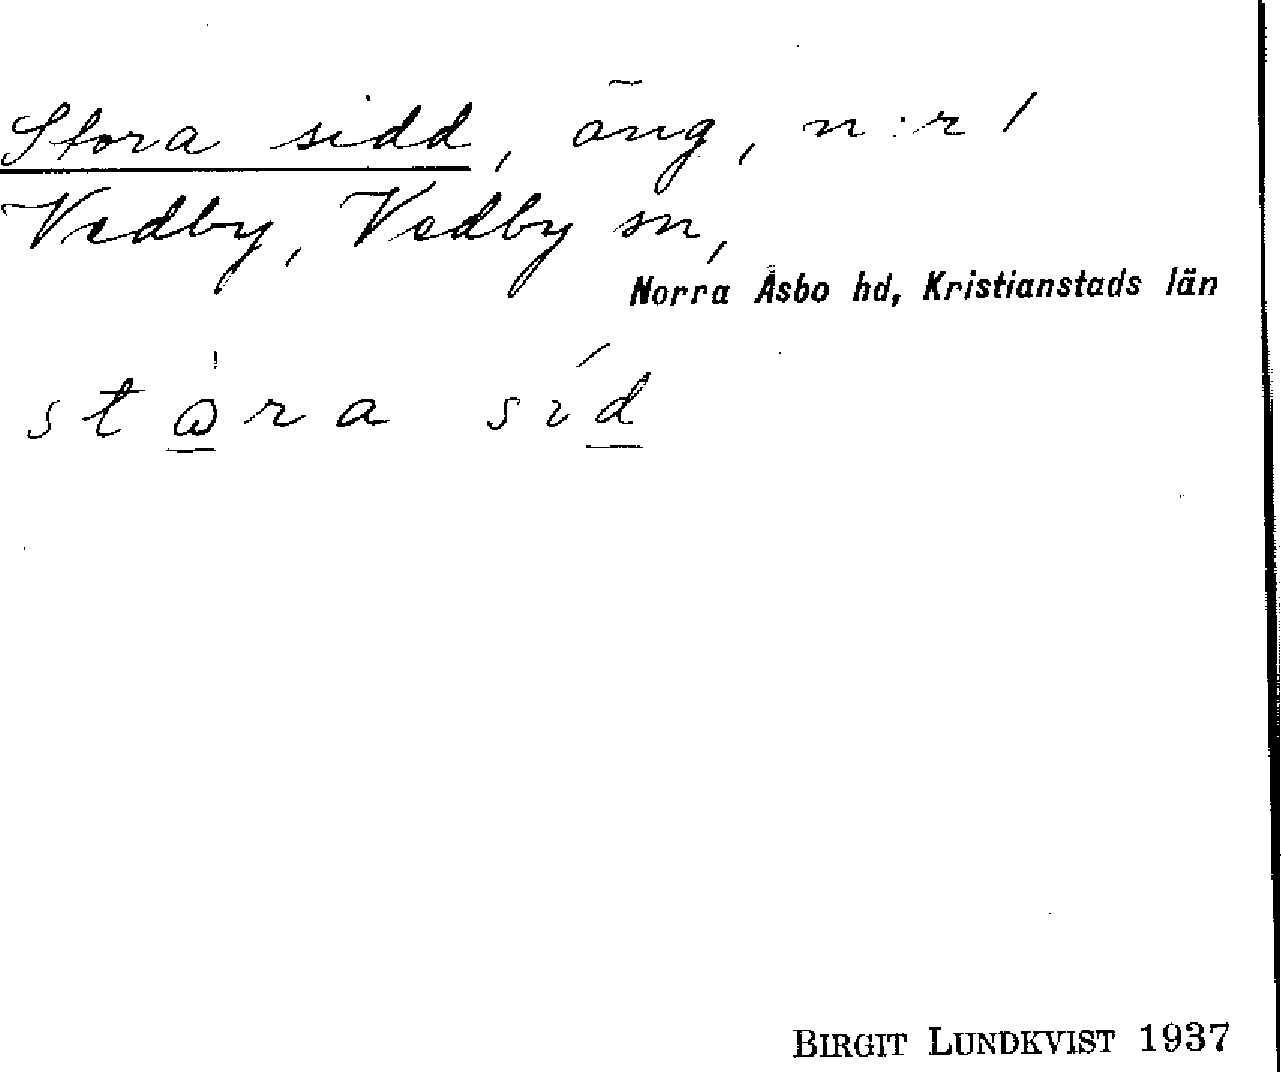 Stora sidd, äng, n:r 1
Vedby, Vedby sn,
Norra Åsbo hd, Kristianstads län
stɷra sid
BIRGIT LUNDKVIST 1937